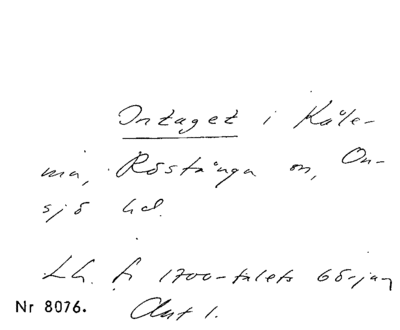 Intaget i Kåle-
mia, Röstånga sn, On-
sjö hd.
Lh. fr 1700-talets början
Nr 8076. Ant 1.